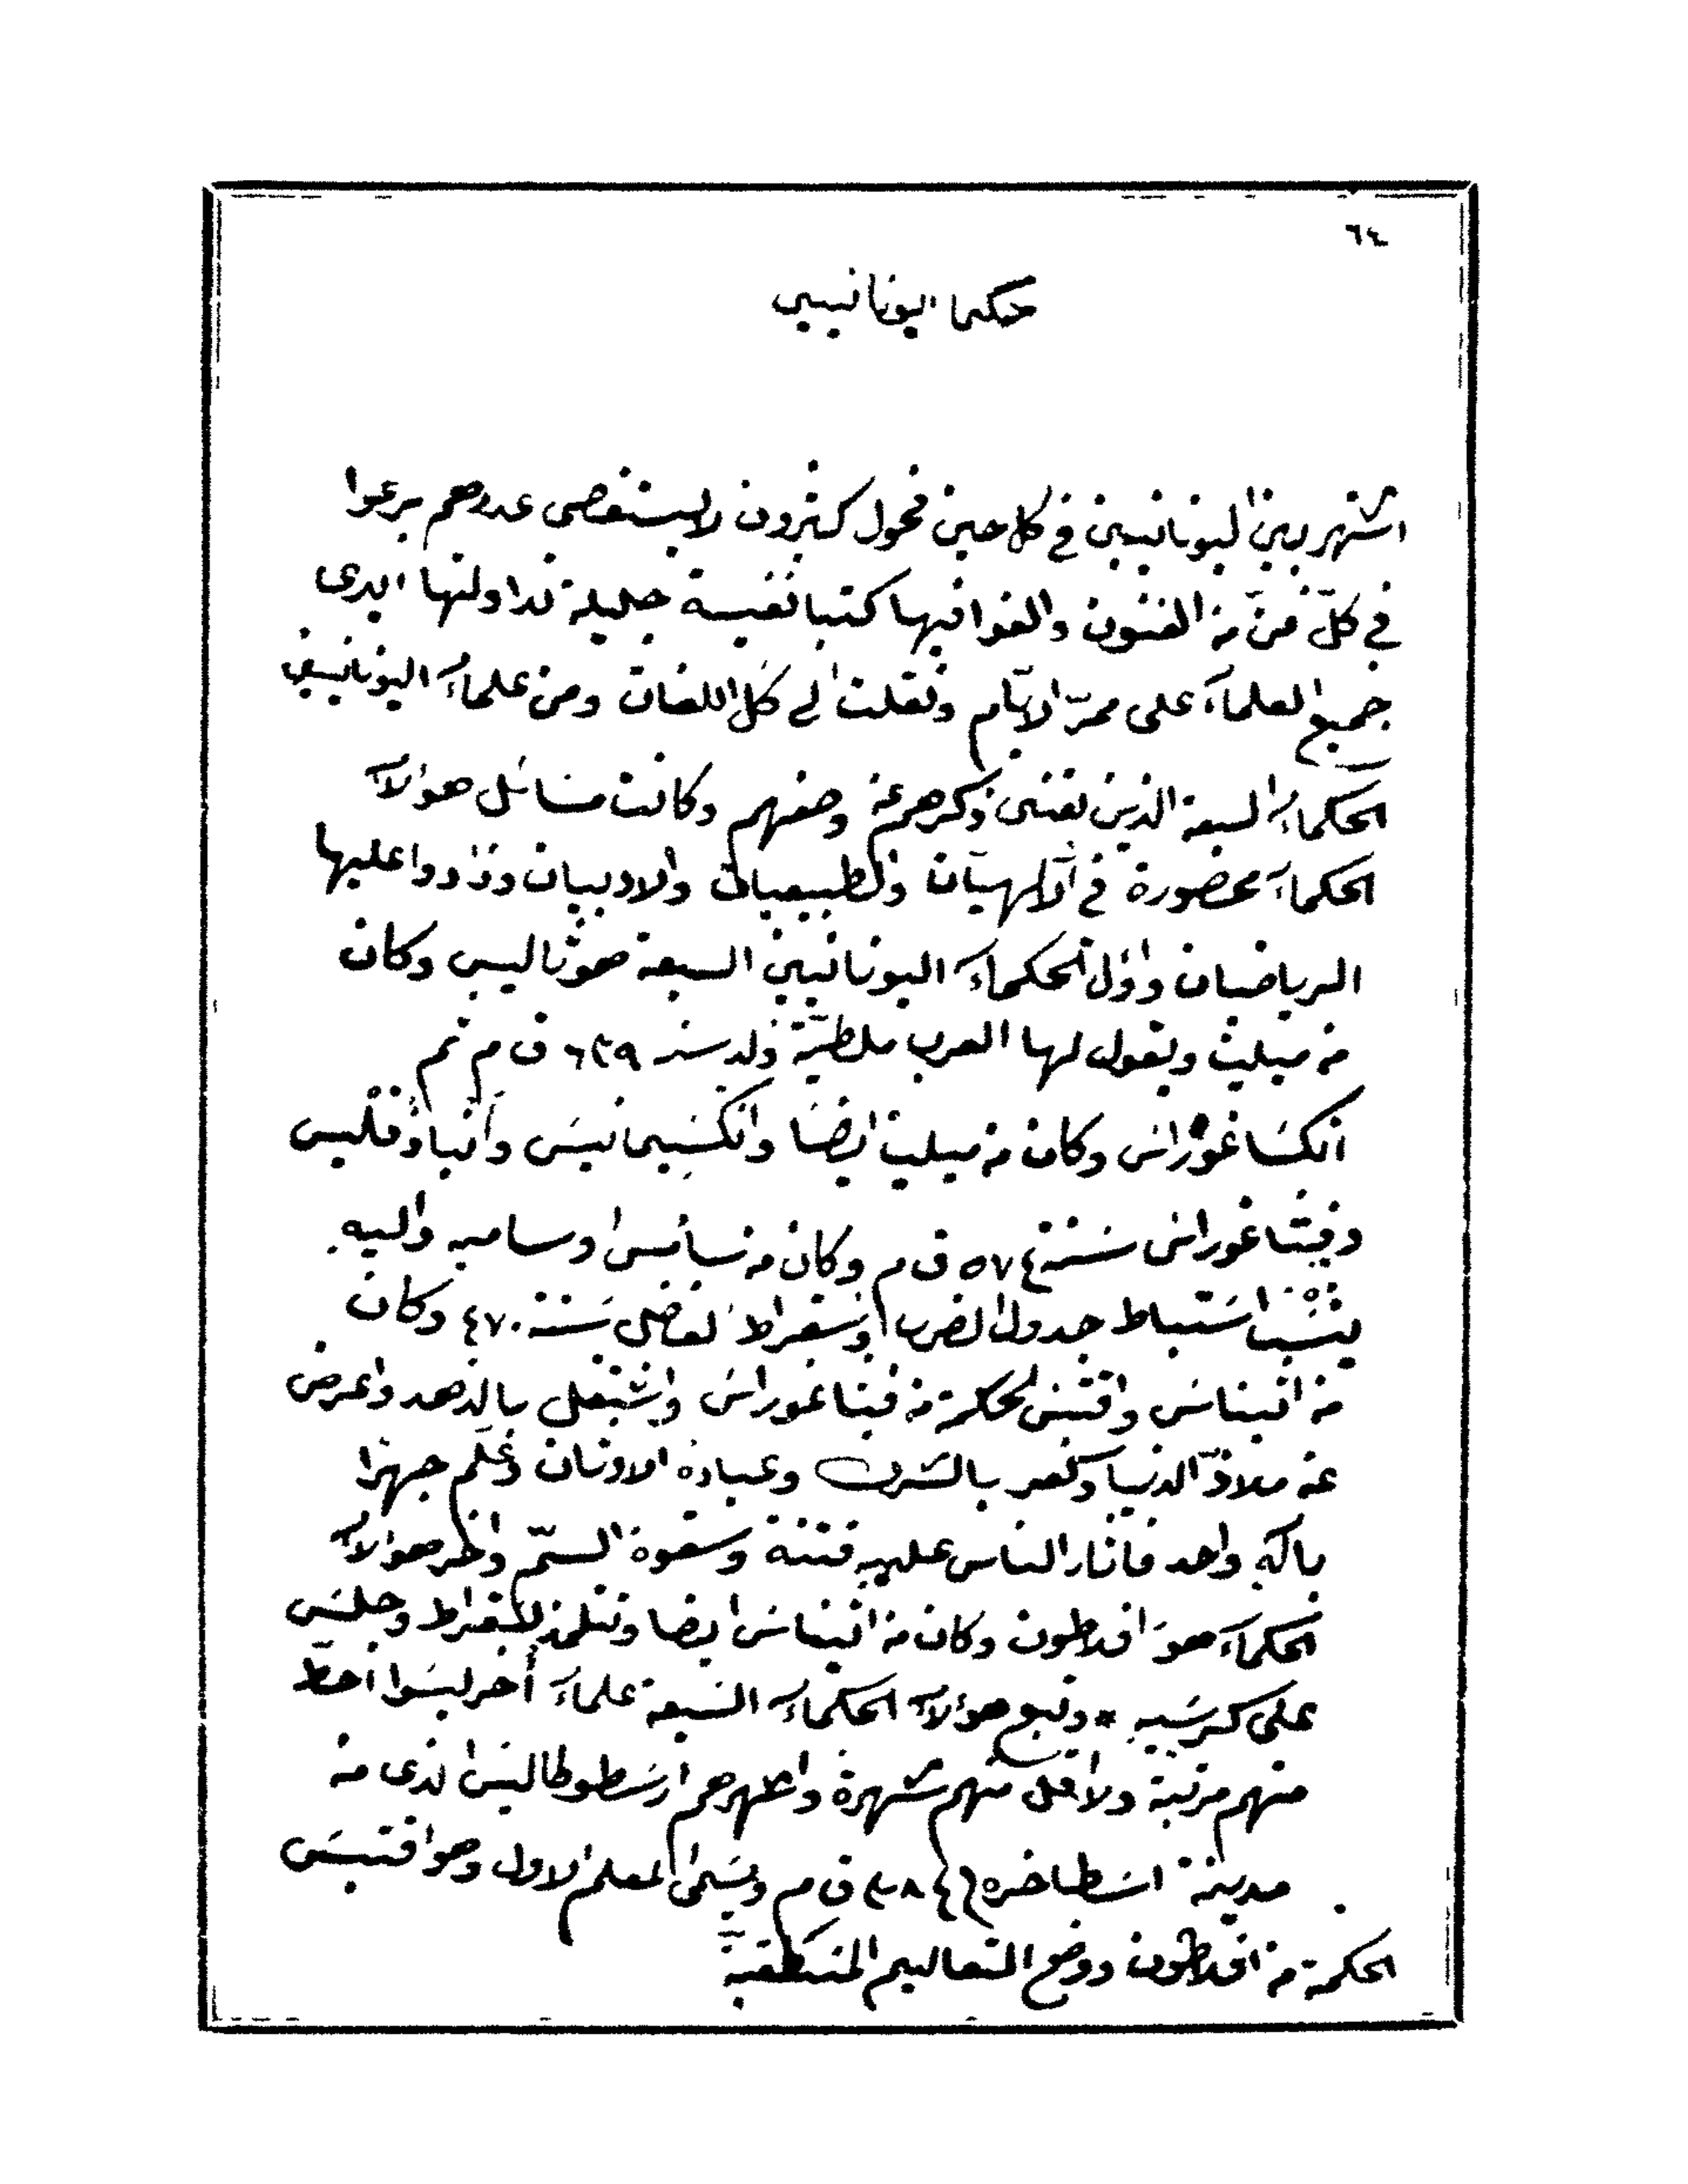 ٦٤
حكما اليونانيين
اشتهر بين اليونانيين في كل حين فحول كثيرون لا يستقصى عددهم برعوا
في كلّ فنّ من الفنون والفوا فيها كتبا نفيسة جليلة تداولتها ايدى
جميع العلماء على ممرّ الايّام ونقلت الى كل اللغات ومن علماء اليونانيين
الحكماء السبعة الذين نعتنى ذكرهم عن وصفهم وكانت مسائل هؤلاء
الحكماء محصورة في الالهيات والطبيعيات والادبيات وزادوا عليها
الرياضيات واول الحكماء اليونانيين السبعة هو ثاليس وكان
من ميليث ويقول لها العرب ملطيّة ولد سنة ٦٣٩ ق م ثم
انكساغوراس وكان من ميليث ايضا وانكسيمانيس وانباذقليس
وفيثاغوراس سنة ٥٧٤ ق م وكان من سامس او ساميه واليه
ينسب استنباط جدول الضرب وسقراط الفاضل سنة ٤٧٠ وكان
من اثيناس واقتبس الحكمة من فيثاغوراس واشتغل بالزهد واعرض
عن ملاذّ الدنيا وكفر بالشرك وعبادة الاوثان وعلّم جهرا
باله واحد فاثار الناس عليه فتنة وسقوه السمّ واخر هؤلاء
الحكماء هو افلاطون وكان من اثيناس ايضا وتتلمذ لسقراط وجلس
على كرسيه * وتبع هؤلاء الحكماء السبعة علماء أخر ليسوا احط
منهم مرتبة ولا اقل منهم شهرة واظهرهم ارسطوطاليس الذى من
مدينة اسطاخره (٣٨٤ ق م ويسمى المعلم الاول وهو اقتبس
الحكمة من افلاطون ووضع التعاليم المنطقية